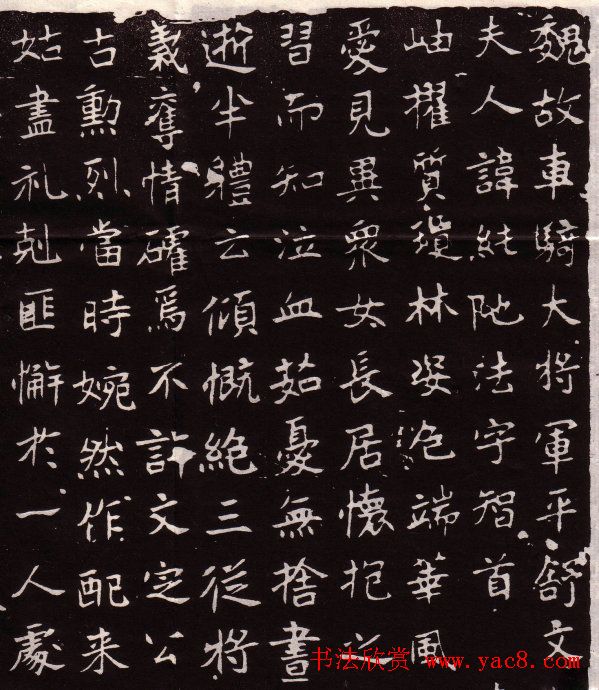 魏故車騎大将軍平舒文
夫人諱純陁法字智首
岫擢質瓊林姿色端華風
愛見異衆女長居懷抱之
習而知泣血茹憂無捨晝
逝半體云傾慨絶三從将
義奪情確焉不許文定公
古勲烈當時婉然作配来
姑盡礼剋匪懈於一人處
书法欣赏 www.yac8.com